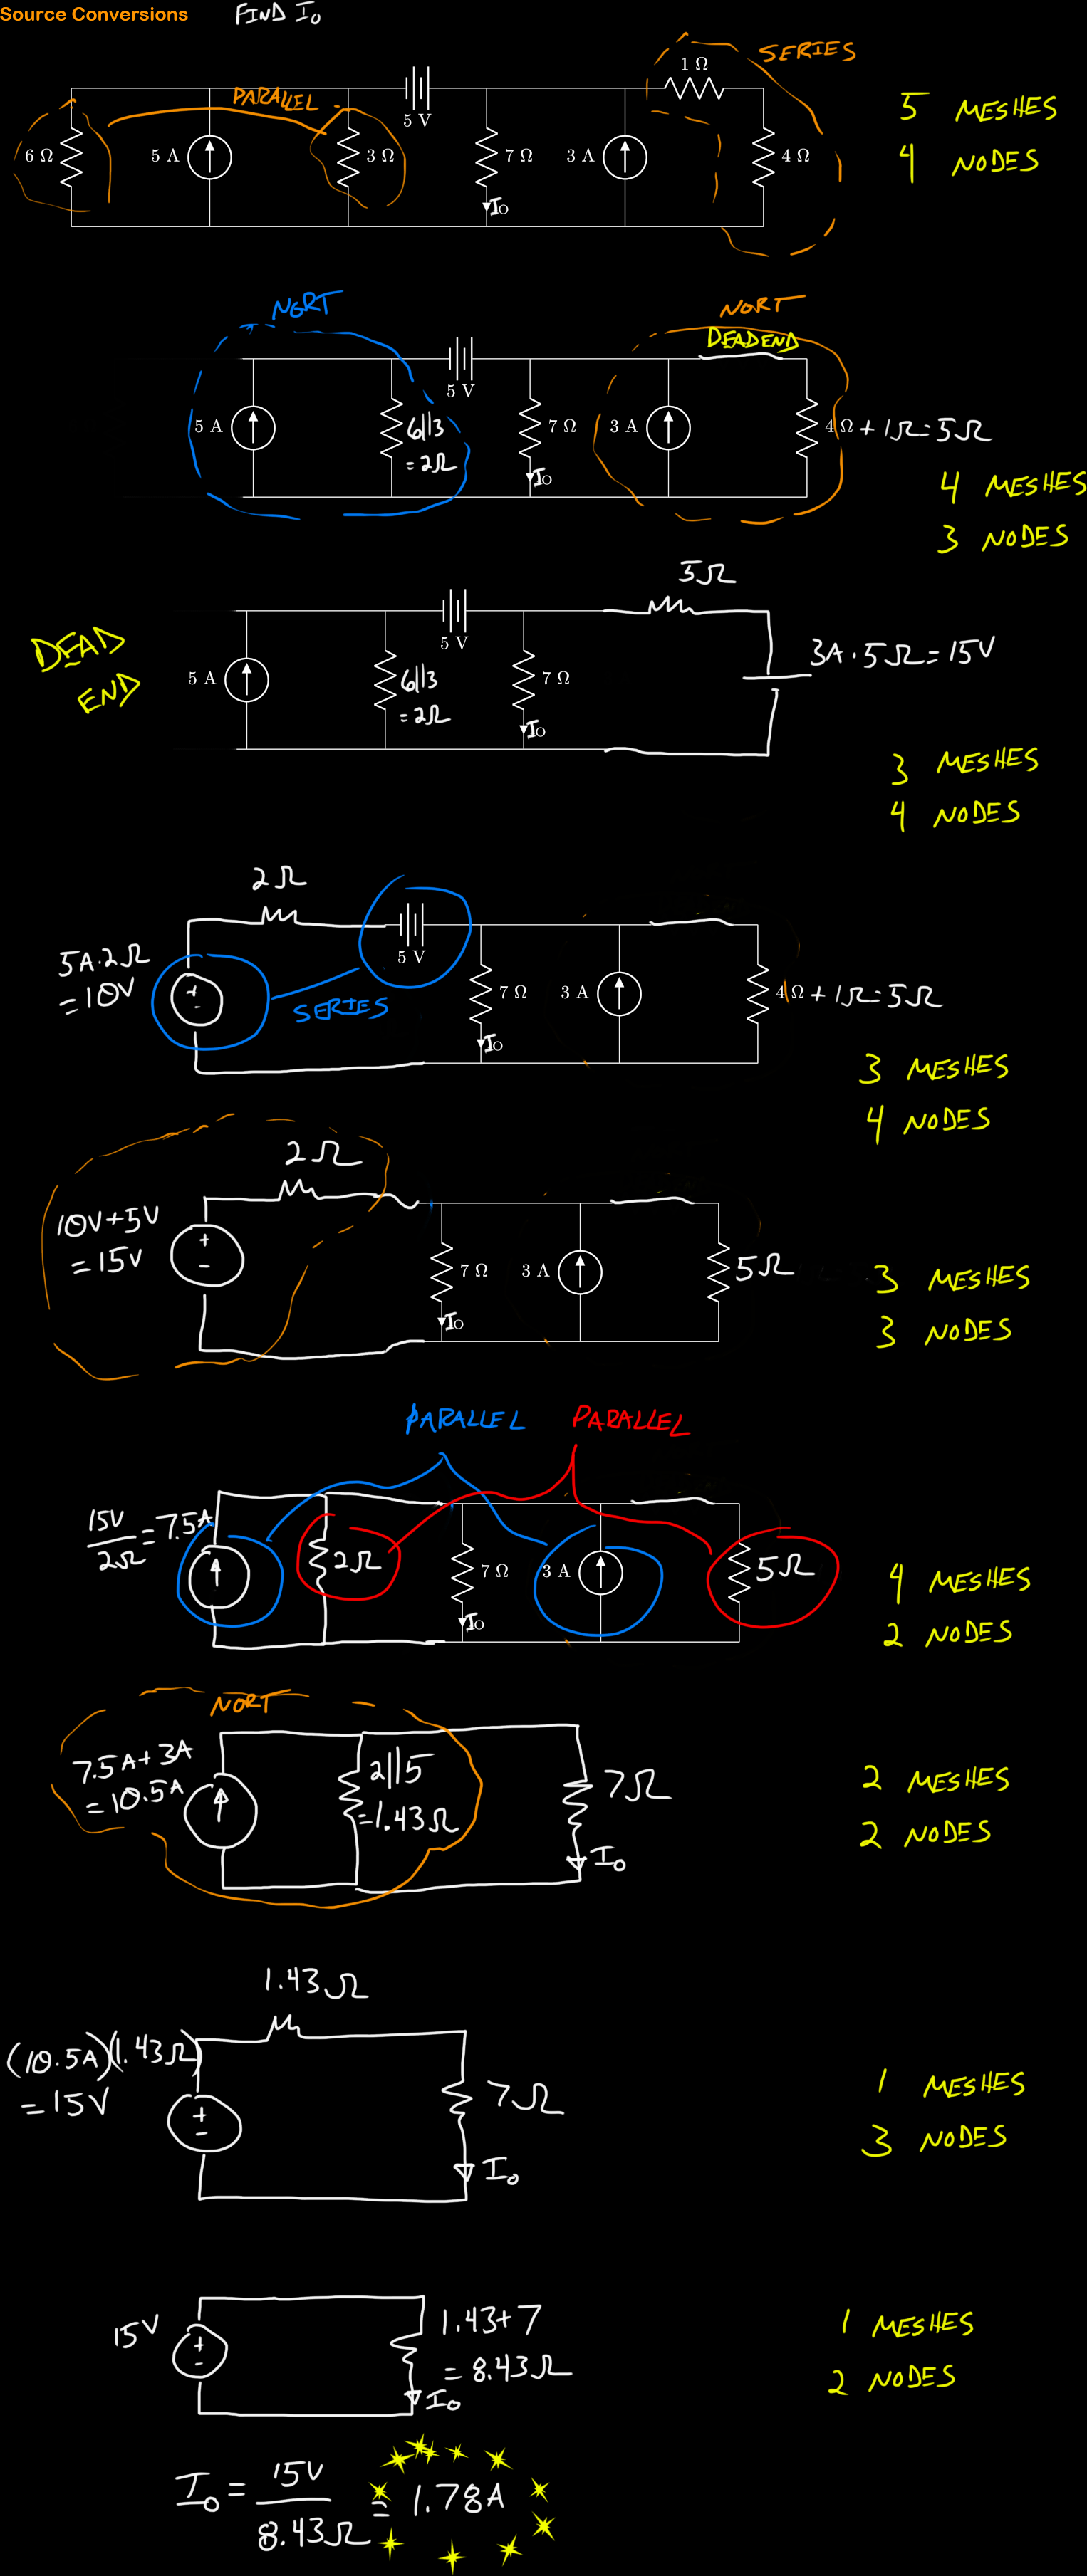 Source Conversions FIND I₀
SERIES
1 Ω
PARALLEL
5 V
6 Ω 5 A 3 Ω 7 Ω 3 A 4 Ω
I₀
5 MESHES
4 NODES
NORT NORT
DEADEND
5 V
5 A 6||3 7 Ω 3 A 4 Ω + 1Ω = 5Ω
= 2Ω
I₀
4 MESHES
3 NODES
5Ω
5 V
DEAD
END
5 A 6||3 7 Ω 3A · 5Ω = 15V
= 2Ω
I₀
3 MESHES
4 NODES
2Ω
5 V
5A · 2Ω
= 10V
+
-
SERIES
7 Ω 3 A 4 Ω + 1Ω = 5Ω
I₀
3 MESHES
4 NODES
2Ω
10V + 5V
= 15V
+
-
7 Ω 3 A 5Ω
I₀
3 MESHES
3 NODES
PARALLEL PARALLEL
15V/2Ω = 7.5A
2Ω 7 Ω 3 A 5Ω
I₀
4 MESHES
2 NODES
NORT
7.5A + 3A
= 10.5A
2||5
= 1.43Ω
7Ω
I₀
2 MESHES
2 NODES
1.43Ω
(10.5A)(1.43Ω)
= 15V
+
-
7Ω
I₀
1 MESHES
3 NODES
15V
+
-
1.43 + 7
= 8.43Ω
I₀
1 MESHES
2 NODES
I₀ = 15V/8.43Ω = 1.78A